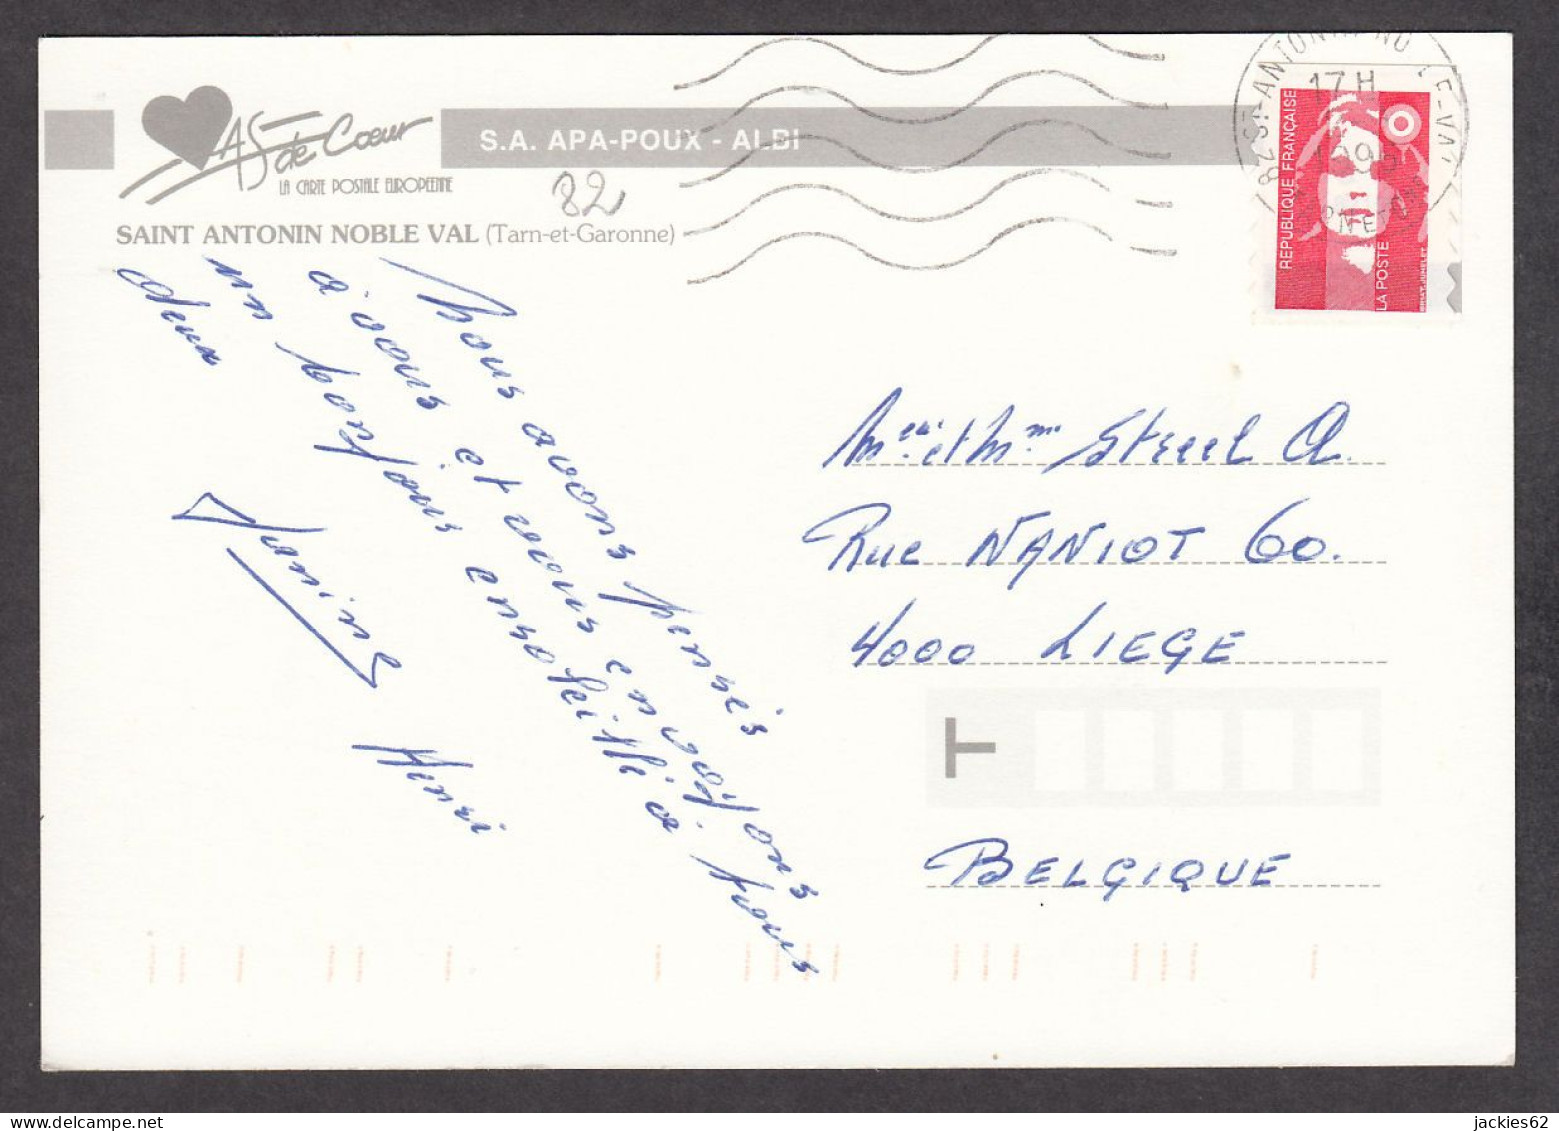 AS de Cœur
LA CARTE POSTALE EUROPEENNE
S.A. APA-POUX - ALBI
82
SAINT ANTONIN NOBLE VAL (Tarn-et-Garonne)
Nous avons pensés
à vous et vous envoyons
un bonjour ensoleillé à tous
deux
Janine
Henri
82 ST-ANTONIN-NOBLE-VAL
17 H
REPUBLIQUE FRANÇAISE
LA POSTE
BRIAT-JUMELET
Mr et Mme Streel A.
Rue NANIOT 60.
4000 LIEGE
BELGIQUE
jackies62